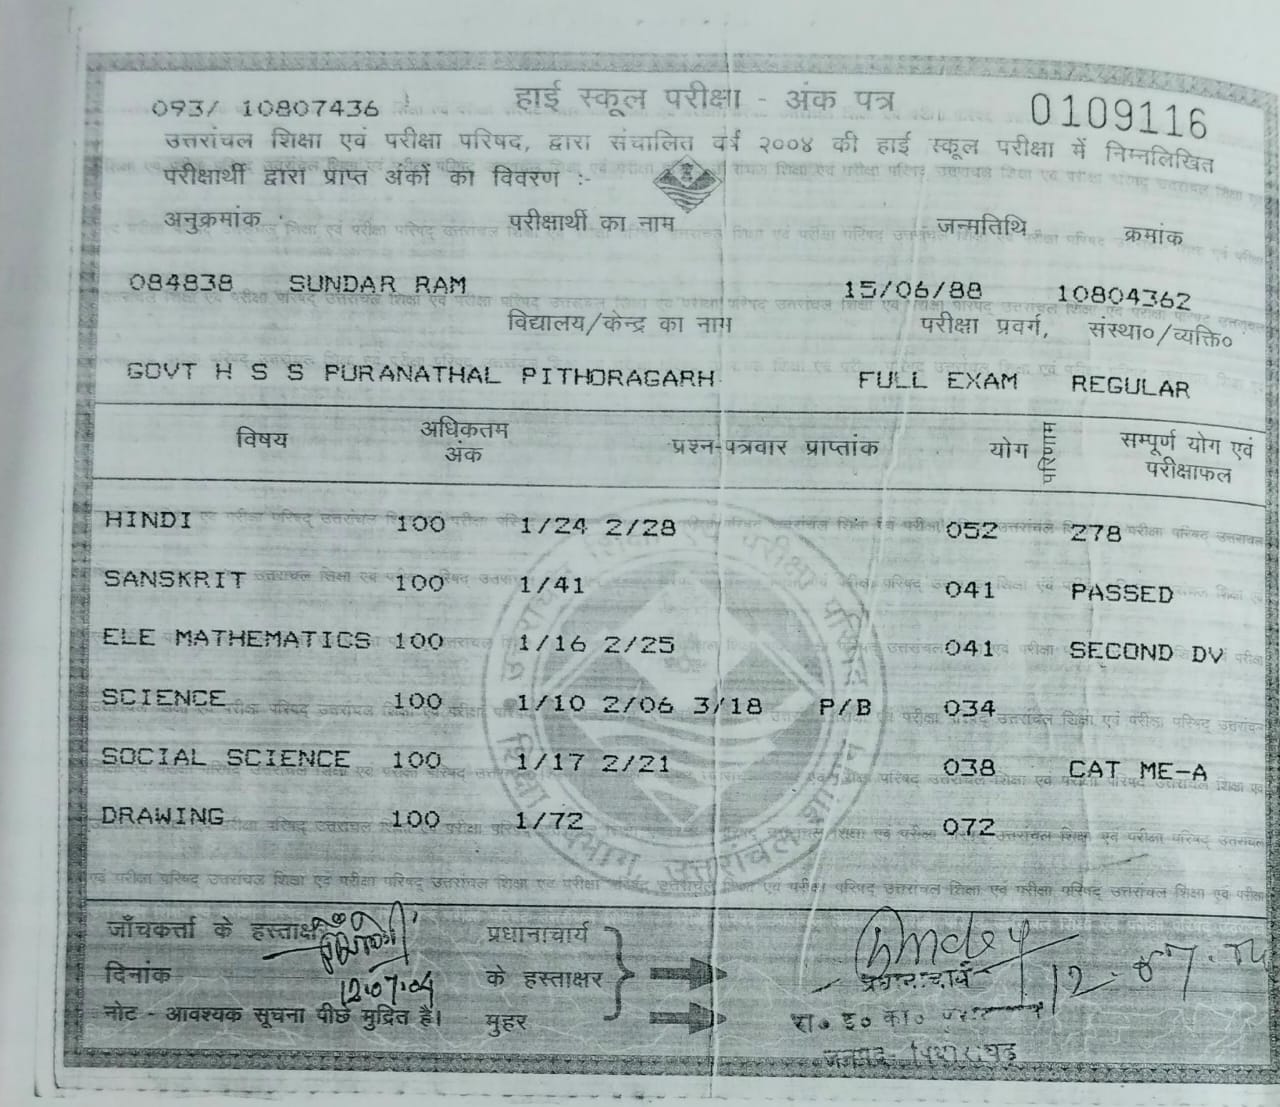 093/ 10807436 हाई स्कूल परीक्षा - अंक पत्र 0109116
उत्तरांचल शिक्षा एवं परीक्षा परिषद, द्वारा संचालित वर्ष २००४ की हाई स्कूल परीक्षा में निम्नलिखित
परीक्षार्थी द्वारा प्राप्त अंकों का विवरण :-
अनुक्रमांक परीक्षार्थी का नाम जन्मतिथि क्रमांक
084838 SUNDAR RAM 15/06/88 10804362
विद्यालय/केन्द्र का नाम परीक्षा प्रवर्ग, संस्था०/व्यक्ति०
GOVT H S S PURANATHAL PITHORAGARH FULL EXAM REGULAR
विषय अधिकतम अंक प्रश्न-पत्रवार प्राप्तांक योग परिणाम सम्पूर्ण योग एवं परीक्षाफल
HINDI 100 1/24 2/28 052 278
SANSKRIT 100 1/41 041 PASSED
ELE MATHEMATICS 100 1/16 2/25 041 SECOND DV
SCIENCE 100 1/10 2/06 3/18 P/B 034
SOCIAL SCIENCE 100 1/17 2/21 038 CAT ME-A
DRAWING 100 1/72 072
जाँचकर्त्ता के हस्ताक्षर प्रधानाचार्य
दिनांक 12.07.04 के हस्ताक्षर प्रधानाचार्य
नोट - आवश्यक सूचना पीछे मुद्रित है। मुहर रा० इ० का०
जनपद - पिथौरागढ़